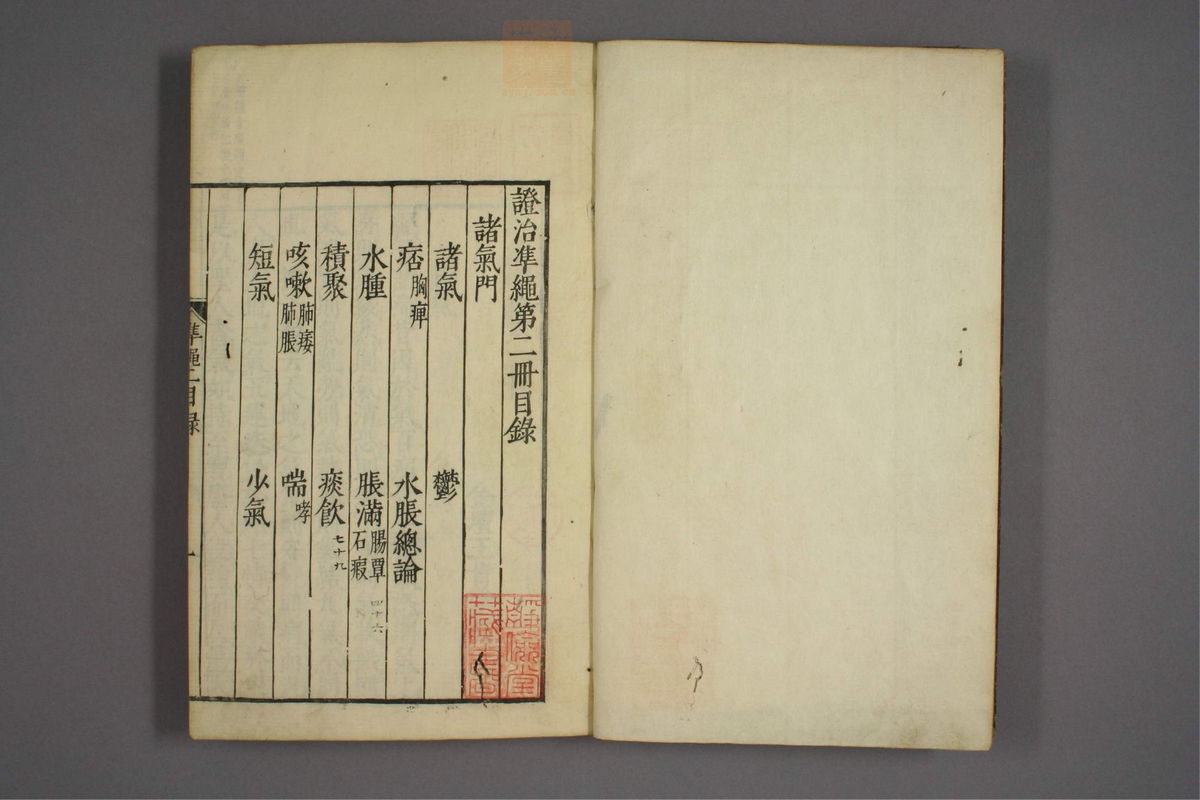 證治準繩第二冊目錄
諸氣門
諸氣 鬱
痞 胸痺 水脹總論
水腫 脹滿 腸覃 石瘕
四十六
積聚 痰飲
七十九
咳嗽 肺痿 肺脹 喘 哮
短氣 少氣
準繩二目錄